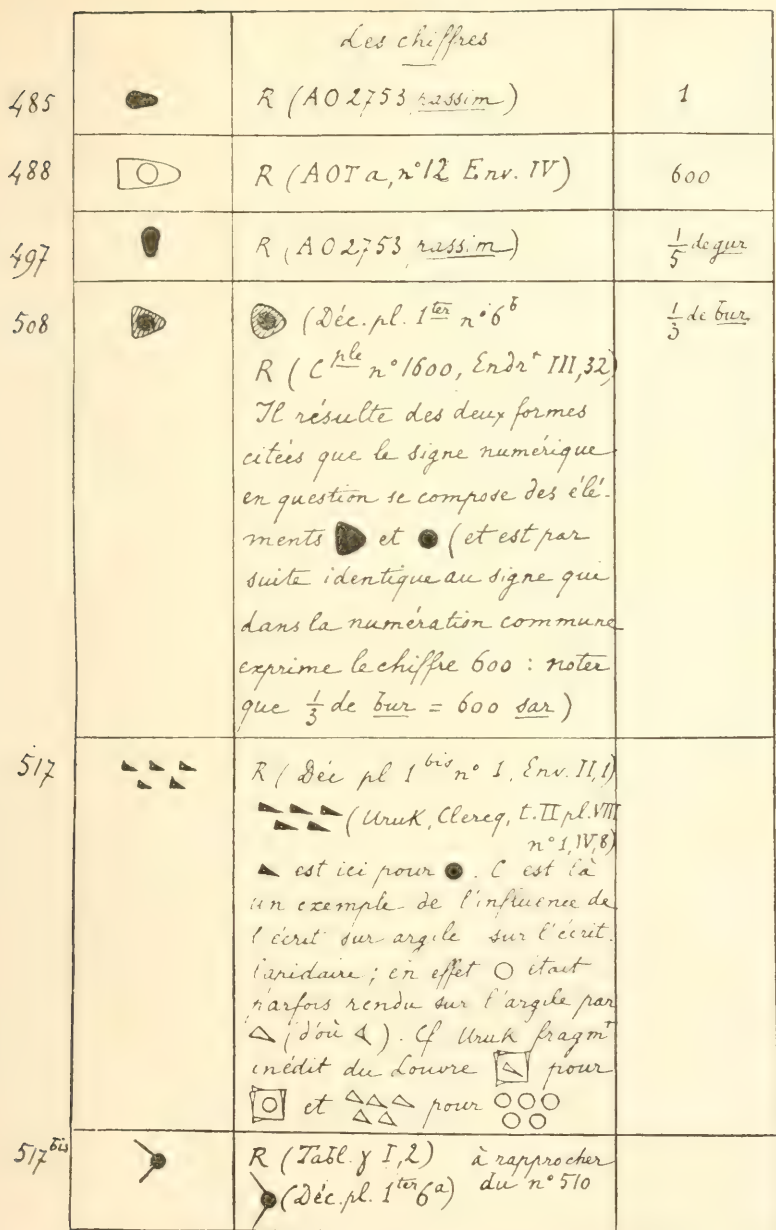 Les chiffres
485 R (AO 2753 rassim) 1
488 R (AOTa, n° 12 Env. IV) 600
497 R (AO 2753 rassim) 1/5 de gur
508 (Déc. pl. 1ter n° 6b 1/3 de bur
R (Cple n° 1600, Endrt III, 32)
Il résulte des deux formes
citées que le signe numérique
en question se compose des élé-
ments et (et est par
suite identique au signe qui
dans la numération commune
exprime le chiffre 600 : noter
que 1/3 de bur = 600 sar)
517 R (Déc pl 1bis n° 1, Env. II, 1)
(Uruk, Clercq, t. II pl. VIII
n° 1, IV, 8)
est ici pour . C est là
un exemple de l'influence de
l écrit sur argile sur l'écrit.
lapidaire ; en effet O était
parfois rendu sur l'argile par
(d'où ). Cf Uruk fragmt
inédit du Louvre pour
et pour
517bis R (Tabl. γ I, 2) à rapprocher
(Déc. pl. 1ter 6a) du n° 510